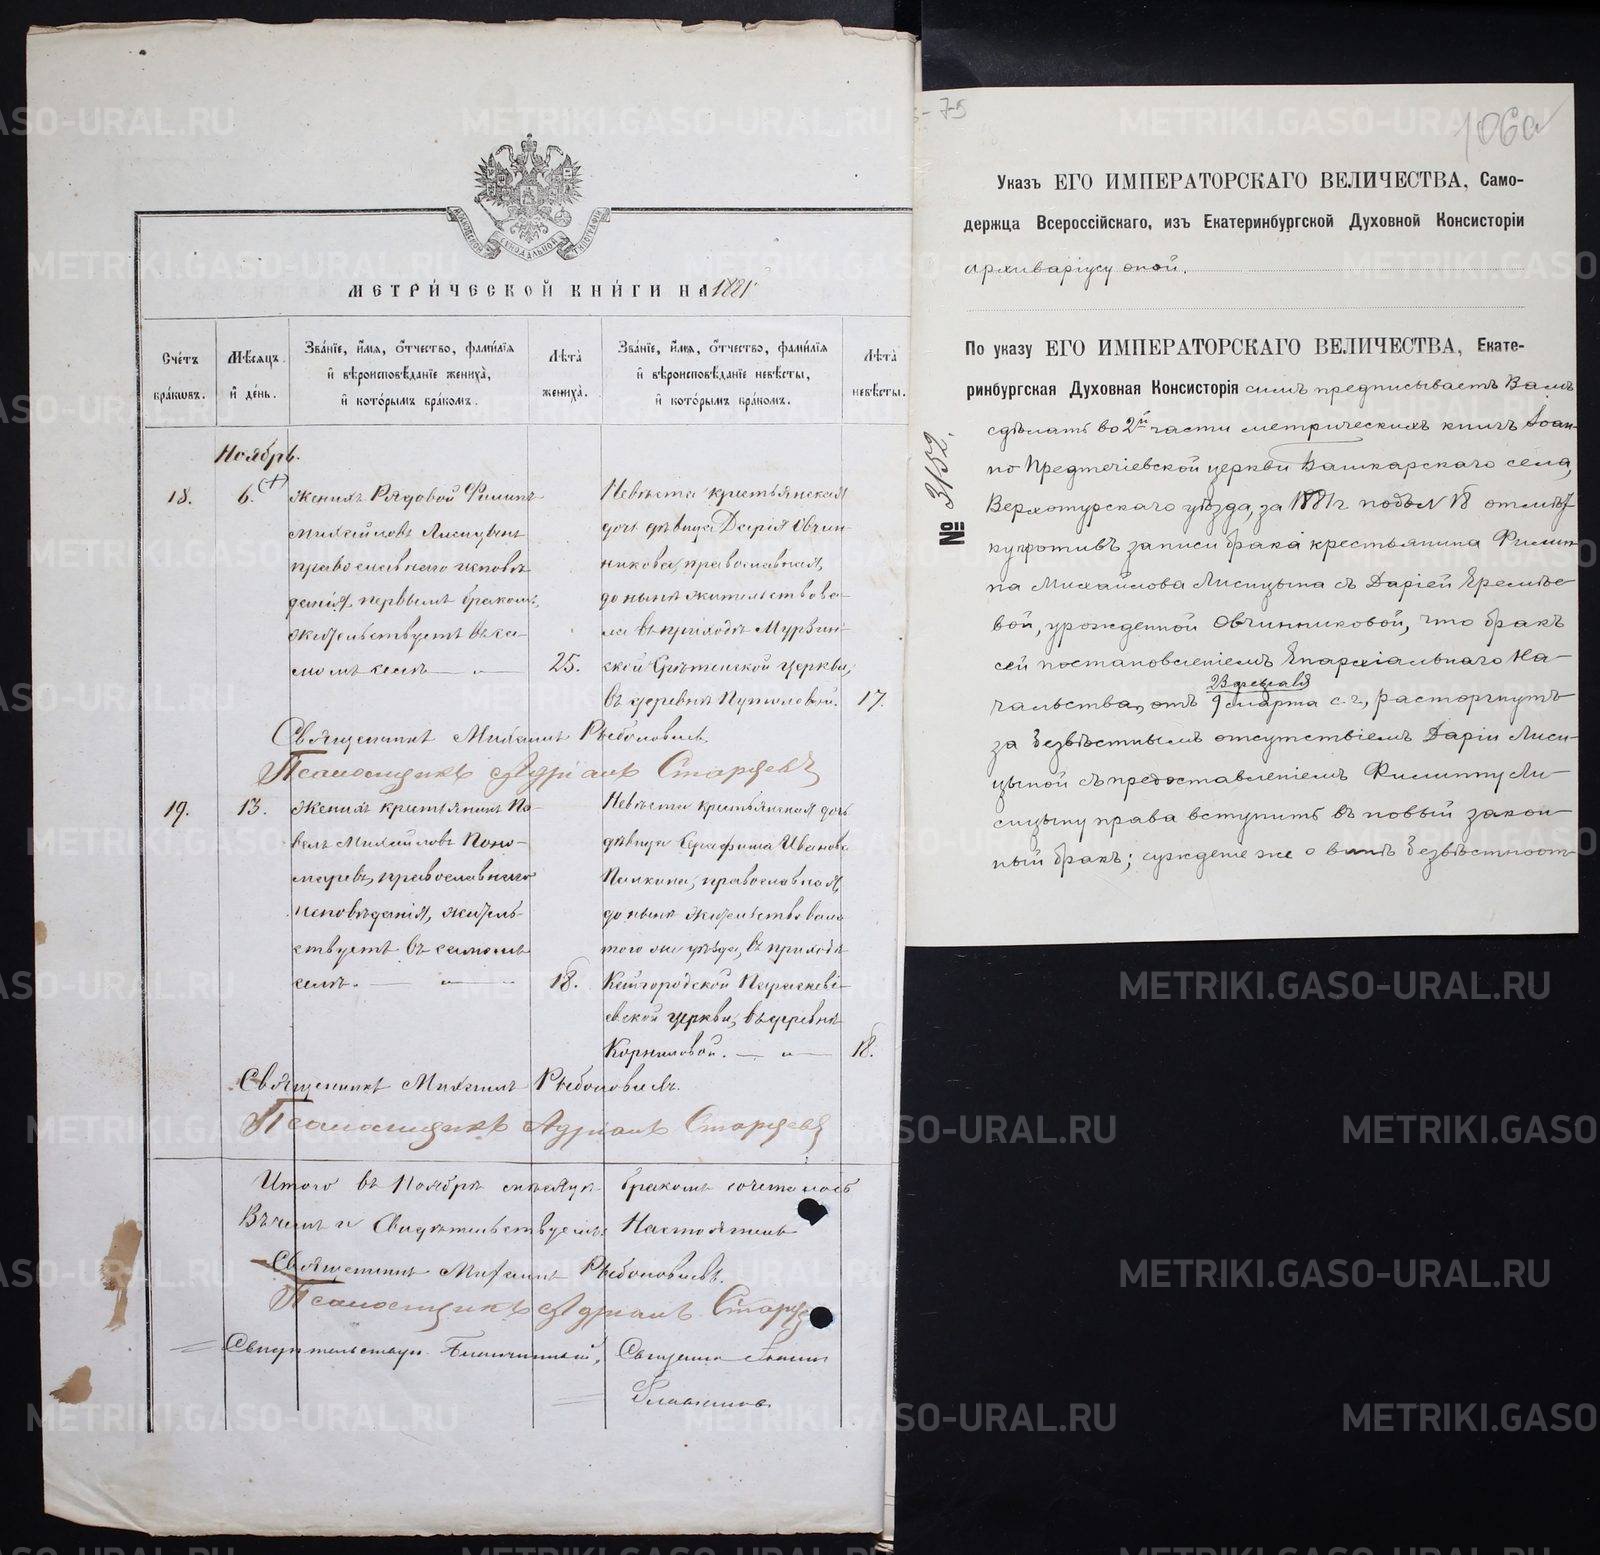 МЕТРИ́ЧЕСКОЙ КНИ́ГИ НА 1881 г.
Счётъ бра́ковъ.
Мѣсяцъ и҆ де́нь.
Зва́нїе, и҆́мѧ, ѻ҆́тчество, фами́лїѧ и҆ вѣроисповѣ́данїе жениха̀, и҆ кото́рымъ бра́комъ.
Лѣта̀ жениха̀.
Зва́нїе, и҆́мѧ, ѻ҆́тчество, фами́лїѧ и҆ вѣроисповѣ́данїе невѣ́сты, и҆ кото́рымъ бра́комъ.
Лѣта̀ невѣ́сты.
Ноябрь.
18.
6. (+)
Женихъ Рядовой Филиппъ
Михайловъ Лисицынъ
православнаго исповѣ
данія, первымъ бракомъ,
жительствуетъ въ са-
момъ селѣ — „ —
25.
Невѣста крестьянская
дочь дѣвица Дарія Овчин-
никова, православная,
до нынѣ жительствова-
ла въ приходѣ Мурзин-
ской Срѣтенской церкви,
въ деревнѣ Путиловой.
17.
Священникъ Михаилъ
Псаломщикъ Адріанъ Старцевъ
19.
13.
Женихъ крестьянинъ Па-
велъ Михайловъ Поно-
маревъ, православнаго
исповѣданія, житель-
ствуетъ въ самомъ
селѣ. — „ —
18.
Невѣста крестьянская дочь
дѣвица Серафима Иванова
православная,
до нынѣ жительствовала
того же уѣзда, въ приходѣ
Кайгородской Параскеві-
евской церкви, въ деревнѣ
Корниловой. — „ —
18.
Священникъ Михаилъ
Псаломщикъ Адріанъ Старцевъ
Итого въ Ноябрѣ мѣсяцѣ бракомъ сочеталось
В чемъ и Свидѣтельствуемъ: Настоятель
Священникъ Михаилъ
Псаломщикъ Адріанъ Старце
Свидѣтельствуи Благочинный, Священникъ
- 75
106а
Указъ ЕГО ИМПЕРАТОРСКАГО ВЕЛИЧЕСТВА, Само-
держца Всероссійскаго, изъ Екатеринбургской Духовной Консисторіи
архиваріусу оной.
По указу ЕГО ИМПЕРАТОРСКАГО ВЕЛИЧЕСТВА, Екате-
ринбургская Духовная Консисторія симъ предписываетъ Вамъ
сдѣлать во 2й части метрическихъ книгъ Іоан-
но Предтечіевской церкви Башкарскаго села,
Верхотурскаго уѣзда, за 1881 г. подъ № 18 отмѣт-
ку противъ записи брака крестьянина Филип-
па Михайлова Лисицына съ Даріей Еремѣе
вой, урожденной Овчинниковой, что бракъ
сей постановленіемъ Епархіальнаго На-
чальства, отъ 23 февраля / 9 марта с. г., расторгнутъ
за безвѣстнымъ отсутствіемъ Даріи Лиси-
цыной съ предоставленіемъ Филиппу Ли-
сицыну права вступить въ новый закон-
ный бракъ; сужденіе же о винѣ безвѣстноот-
№ 3152.
METRIKI.GASO-URAL.RU